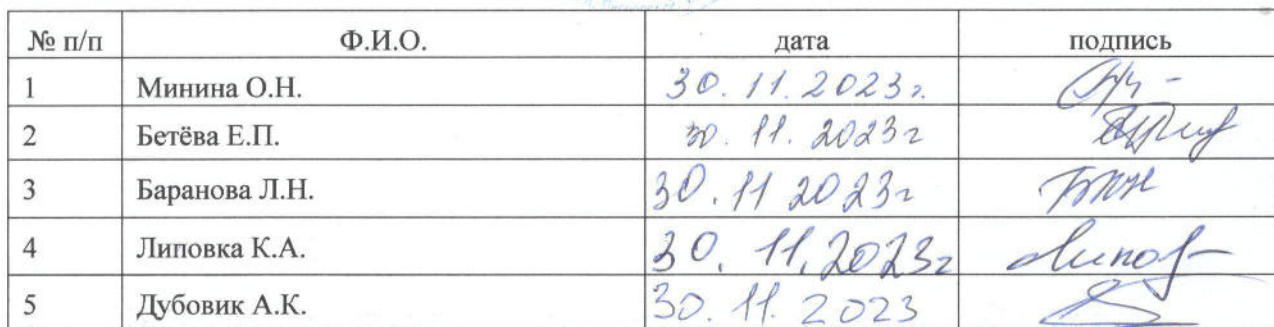 № п/п Ф.И.О. дата подпись
1 Минина О.Н. 30.11.2023г.
2 Бетёва Е.П. 30.11.2023г
3 Баранова Л.Н. 30.11 2023г
4 Липовка К.А. 30.11.2023г
5 Дубовик А.К. 30.11.2023